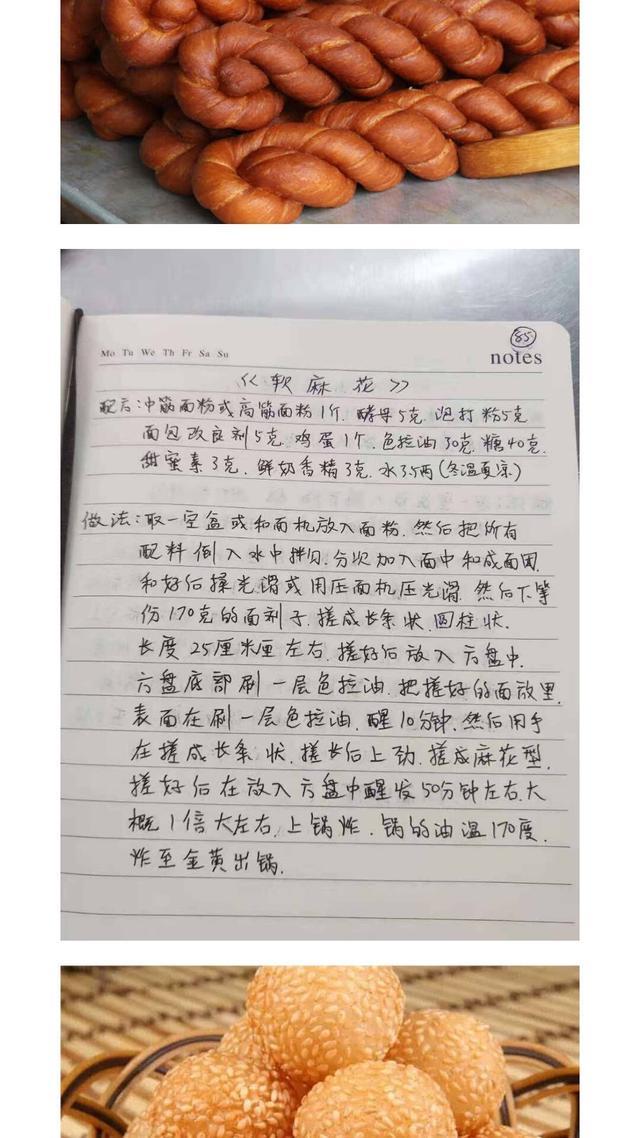 85
Mo Tu We Th Fr Sa Su
notes
《软麻花》
配方:中筋面粉或高筋面粉1斤.酵母5克.泡打粉5克
面包改良剂5克.鸡蛋1个.色拉油30克.糖40克.
甜蜜素3克.鲜奶香精3克.水3.5两(冬温夏凉)
做法:取一空盆或和面机放入面粉.然后把所有
配料倒入水中拌匀.分次加入面中和成面团.
和好后揉光滑或用压面机压光滑.然后下等
份170克的面剂子.搓成长条状.圆柱状.
长度25厘米厘左右.搓好后放入方盘中.
方盘底部刷一层色拉油.把搓好的面放里.
表面在刷一层色拉油.醒10分钟.然后用手
在搓成长条状.搓长后上劲.搓成麻花型.
搓好后在放入方盘中醒发50分钟左右.大
概1倍大左右.上锅炸.锅的油温170度.
炸至金黄出锅.